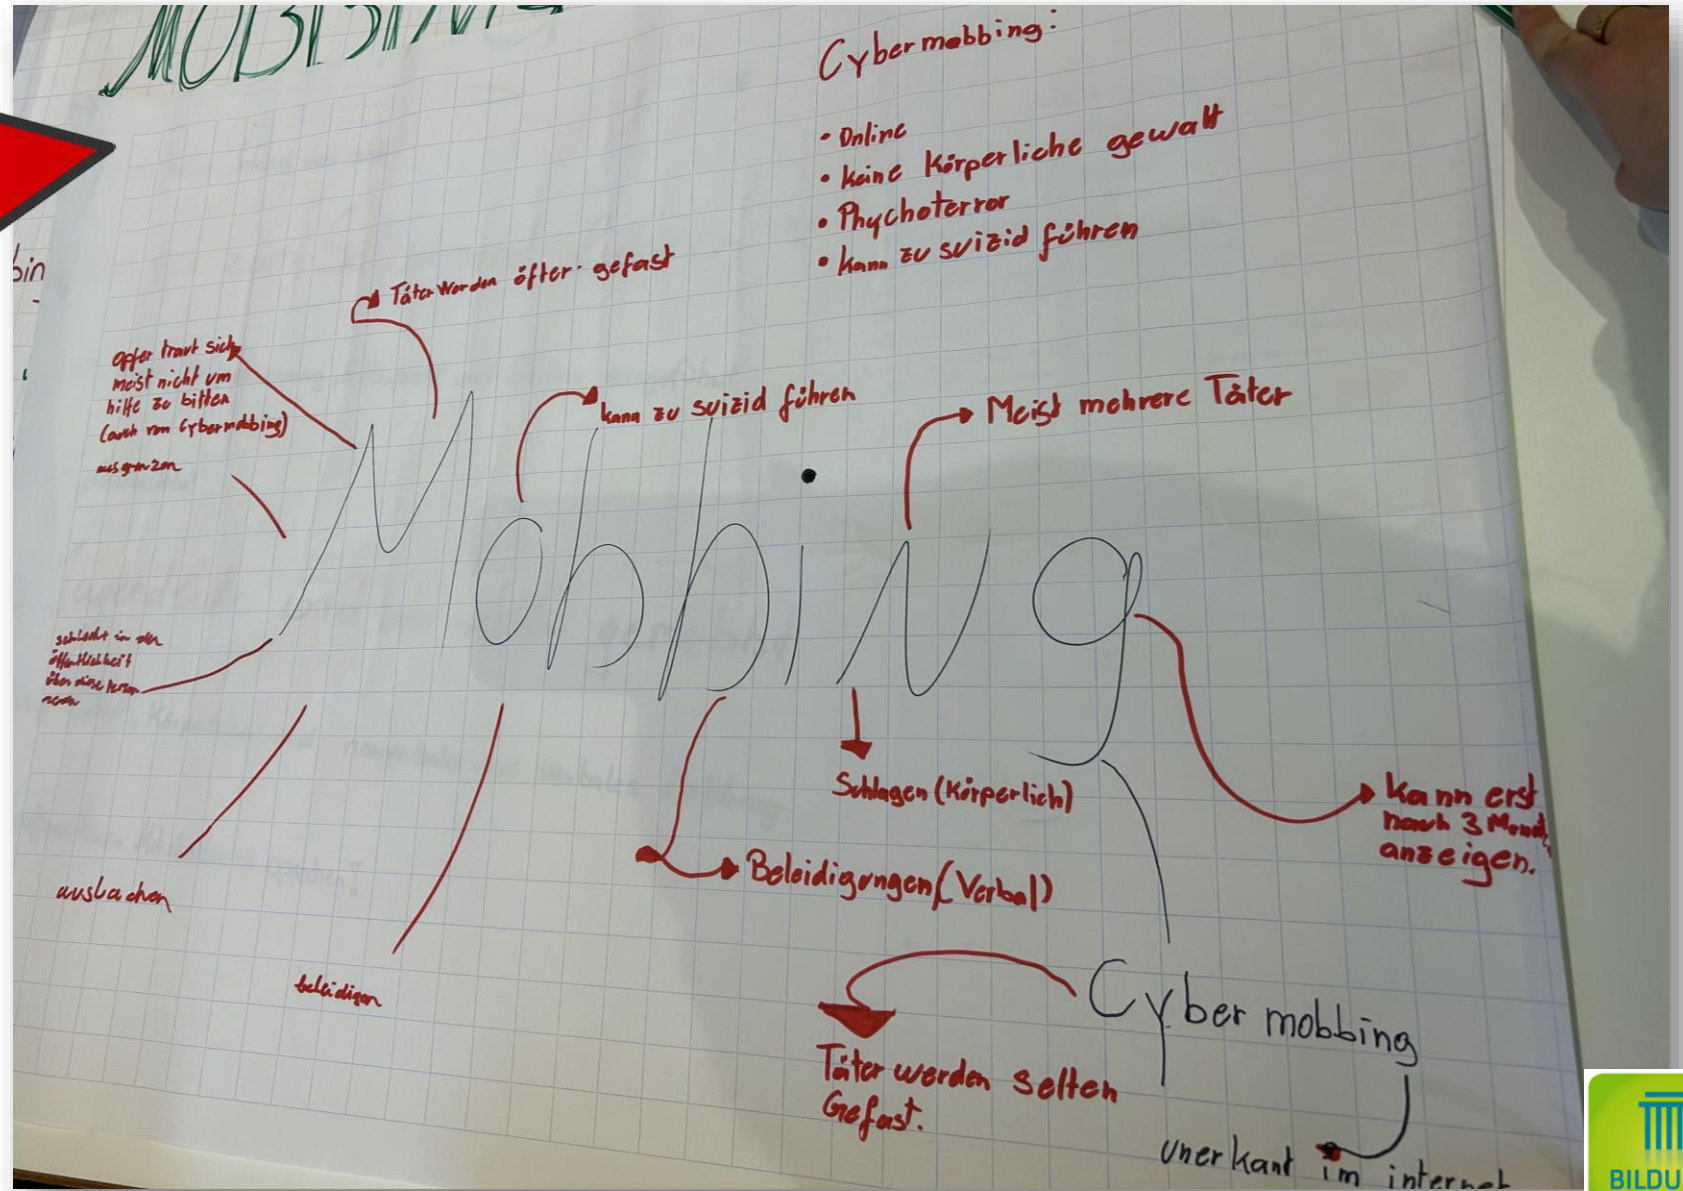 MOBBING
Cybermobbing:
• Online
• keine Körperliche gewalt
• Phychoterror
• kann zu suizid führen
Täter werden öfter gefast
opfer traut sich
meist nicht um
hilfe zu bitten
(auch von Cybermobbing)
ausgrenzen
kann zu suizid führen
Meist mehrere Täter
Mobbing
schlecht in der
öffentlichkeit
über diese Person
reden
Schlagen (Körperlich)
kann erst
nach 3 Monat
anzeigen.
Beleidigungen (Verbal)
auslachen
beleidigen
Cyber mobbing
Täter werden selten
Gefast.
unerkant im internet
BILDU